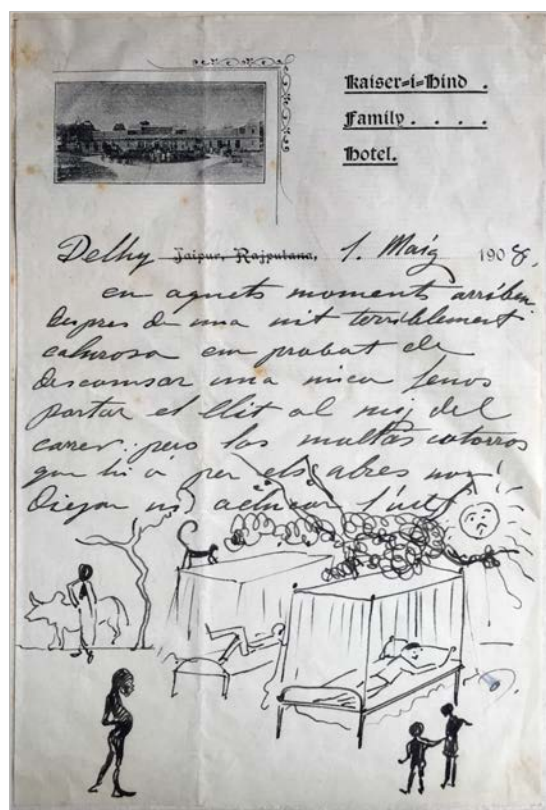 Kaiser-i-Hind .
Family . . . .
Hotel.
Delhy Jaipur, Rajputana, 1. Maig 1908.
en aquets moments arriben
despres de una nit terriblement
calurosa em probat de
descansar una mica fenos
portar el llit al mij del
carrer; pero las moltas cotorros
que hi á per els abres nos
Diejan ni aclucar l'ull